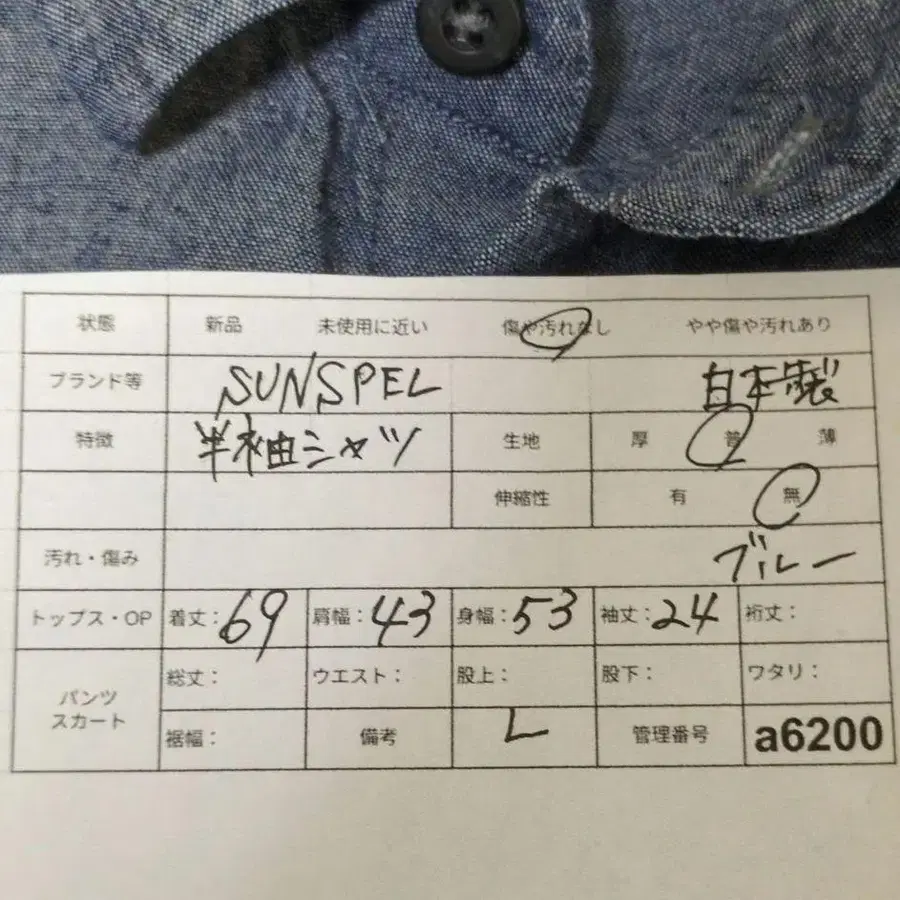 状態 新品 未使用に近い 傷や汚れなし やや傷や汚れあり
ブランド等 SUNSPEL 日本製
特徴 半袖シャツ 生地 厚 普 薄
伸縮性 有 無
汚れ・傷み ブルー
トップス・OP 着丈:69 肩幅:43 身幅:53 袖丈:24 裄丈:
パンツ スカート 総丈: ウエスト: 股上: 股下: ワタリ:
裾幅: 備考 L 管理番号 a6200